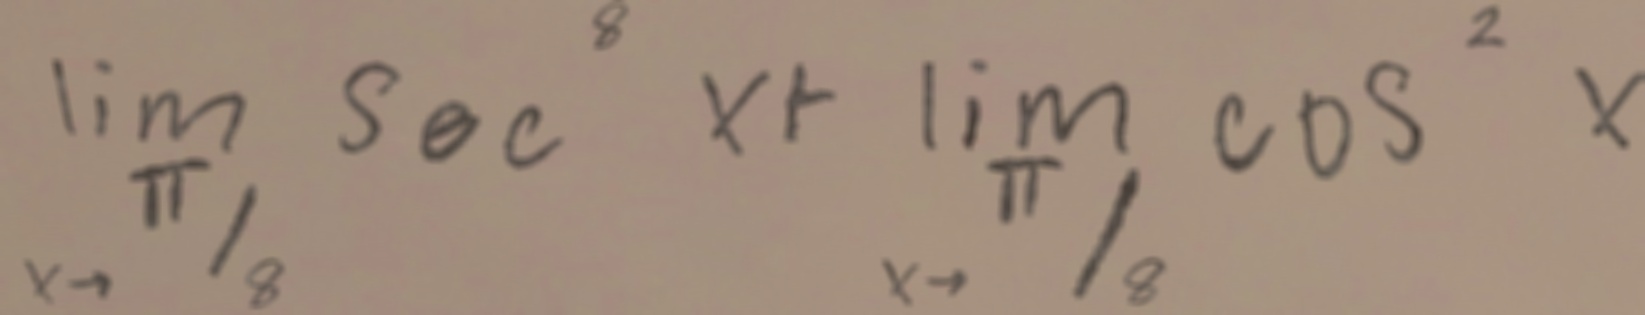 lim_{x→π/8} sec^8 x + lim_{x→π/8} cos^2 x